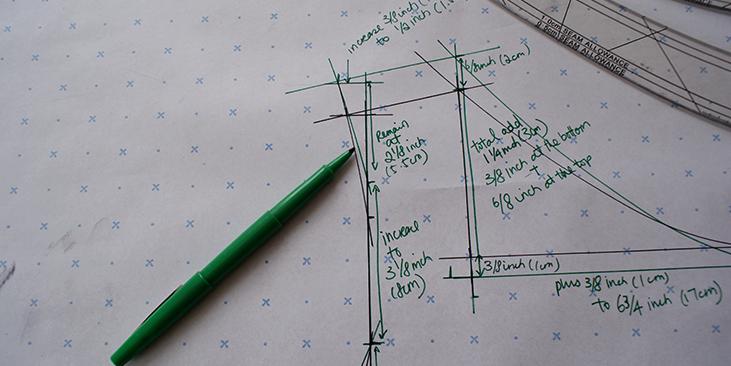 increase 3/8 inch
to 1/2 inch
6/8 inch (2cm)
1.0cm SEAM ALLOWANCE
SEAM ALLOWANCE
Remain
at
2 1/8 inch
(5.5cm)
total add
1 1/4 inch (3cm)
3/8 inch at the bottom
+
6/8 inch at the top
increase
to
3 1/8 inch
(8cm)
3/8 inch (1cm)
plus 3/8 inch (1cm)
to 6 3/4 inch (17cm)